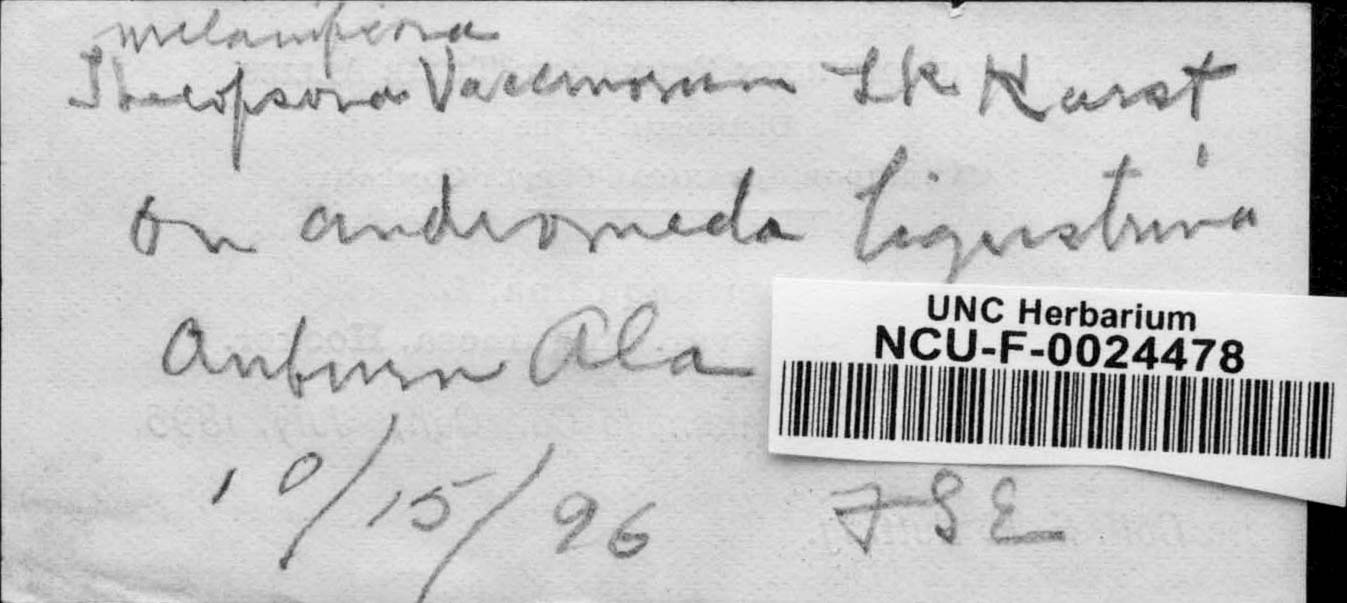 melampsora
Thecopsora Vacciniorum Lk Karst
on andromeda ligustrina
Auburn Ala
UNC Herbarium
NCU-F-0024478
10/15/96 FSE